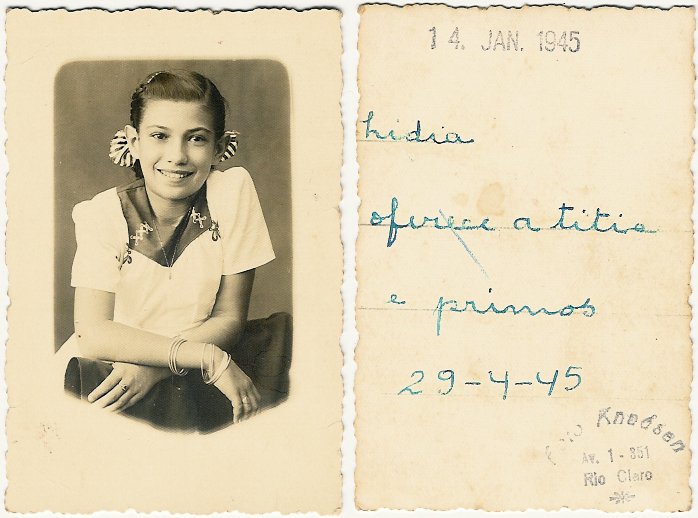 14. JAN. 1945
Lidia
oferece a titia
e primos
29-4-45
Foto Knudsen
Av. 1 - 351
Rio Claro